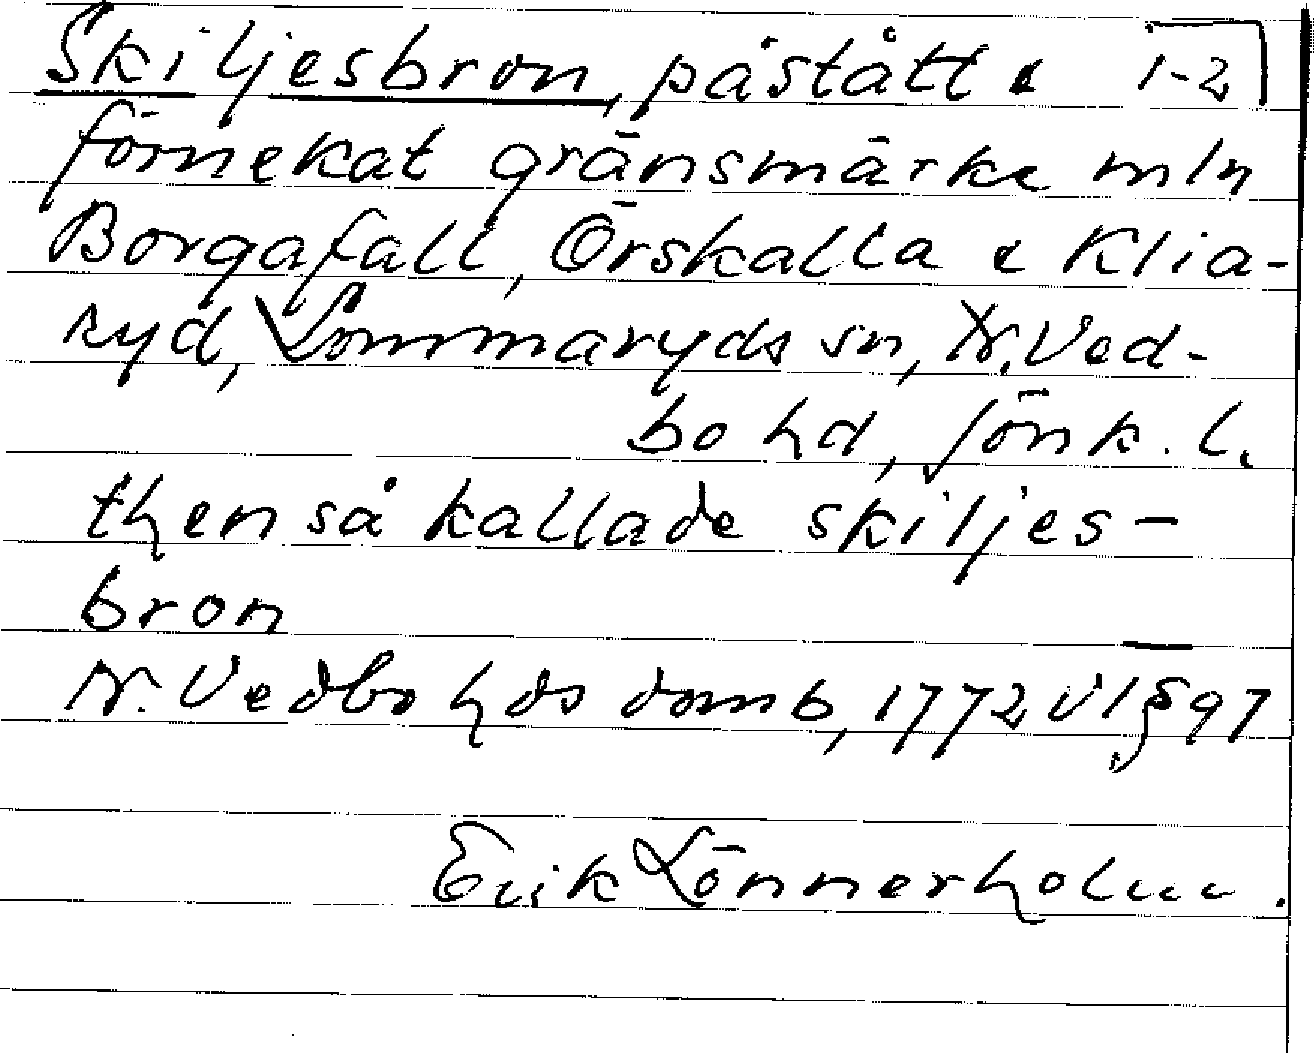 Skiljesbron, påstått & 1-2
förnekat gränsmärke mln
Borgafall, Örskalla & Klia-
ryd, Lommaryds sn, N. Ved-
bo hd, Jönk. l.
then så kallade skiljes-
bron
N. Vedbo hds domb, 1772 VI § 97
Erik Lönnerholm.